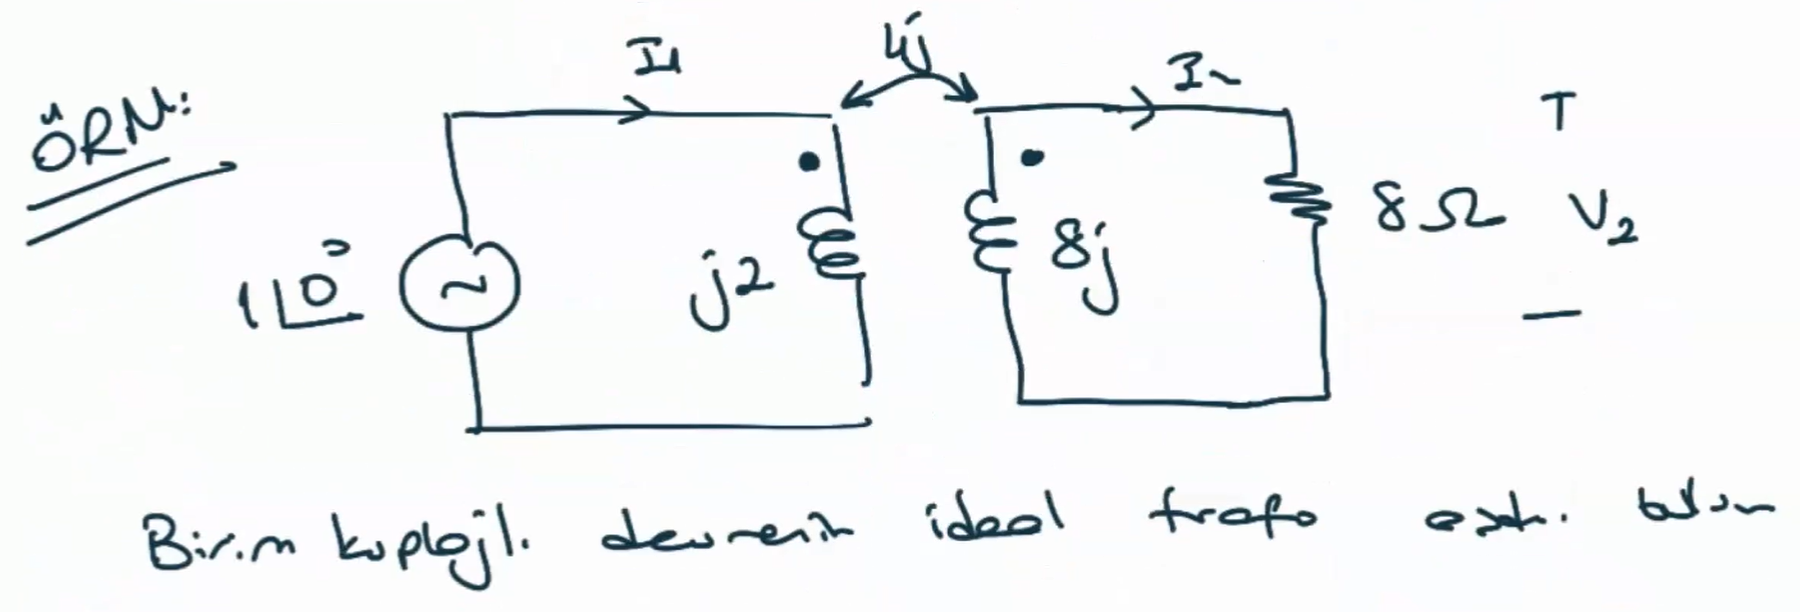 ÖRN:
I1
4j
I2
T
1∠0°
~
j2
8j
8Ω
V2
—
Birim kuplajlı devrenin ideal trafo eşd. bulun